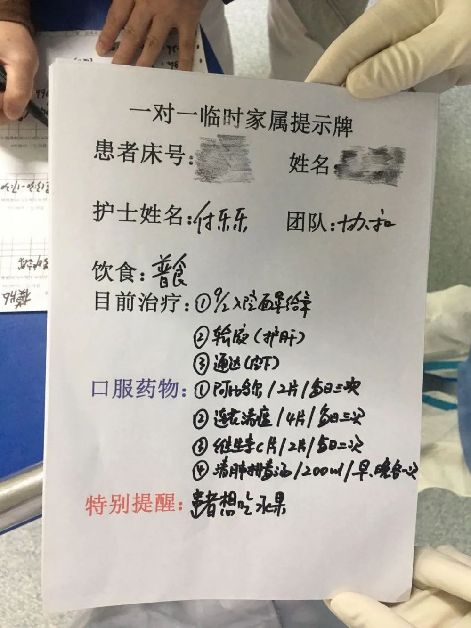 一对一临时家属提示牌
患者床号: 姓名:
护士姓名:付乐乐 团队:协和
饮食:普食
目前治疗:①9/2入院面罩给氧
②输液(护肝)
③通达(皮下)
口服药物:①阿比多尔/2片/每日三次
②连花清瘟/4片/每日三次
③维生素C片/2片/每日二次
④清肺排毒汤/200ml/早、晚各一次
特别提醒:患者想吃水果